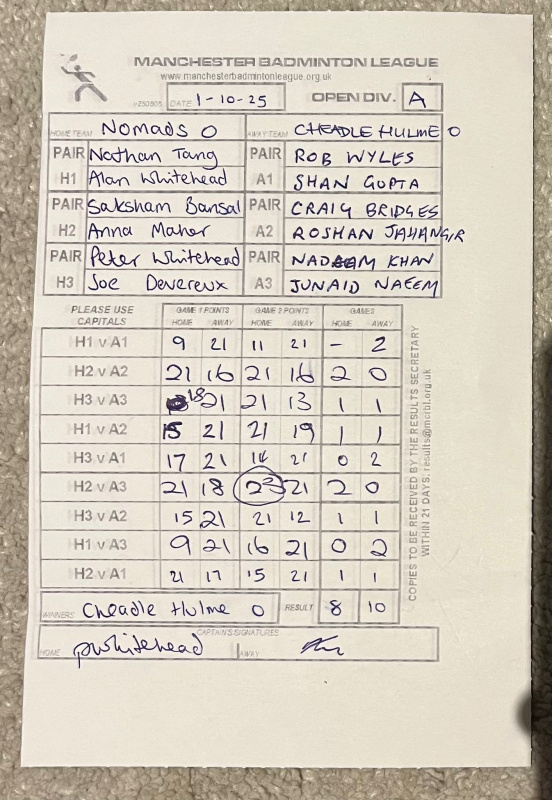 MANCHESTER BADMINTON LEAGUE
www.manchesterbadmintonleague.org.uk
v230805 DATE 1-10-25 OPEN DIV. A
HOME TEAM Nomads O AWAY TEAM CHEADLE HULME O
PAIR Nathan Tang PAIR ROB WYLES
H1 Alan Whitehead A1 SHAN GUPTA
PAIR Saksham Bansal PAIR CRAIG BRIDGES
H2 Anna Maher A2 ROSHAN JAHANGIR
PAIR Peter Whitehead PAIR NADEEM KHAN
H3 Joe Devereux A3 JUNAID NAEEM
PLEASE USE CAPITALS GAME 1 POINTS GAME 2 POINTS GAMES
HOME AWAY HOME AWAY HOME AWAY
H1 v A1 9 21 11 21 - 2
H2 v A2 21 16 21 16 2 0
H3 v A3 18 21 21 13 1 1
H1 v A2 15 21 21 19 1 1
H3 v A1 17 21 21 0 2
H2 v A3 21 18 23 21 2 0
H3 v A2 15 21 21 12 1 1
H1 v A3 9 21 16 21 0 2
H2 v A1 21 17 15 21 1 1
WINNERS Cheadle Hulme O RESULT 8 10
CAPTAIN'S SIGNATURES
HOME pwhitehead AWAY
COPIES TO BE RECEIVED BY THE RESULTS SECRETARY
WITHIN 21 DAYS. results@mcrbl.org.uk